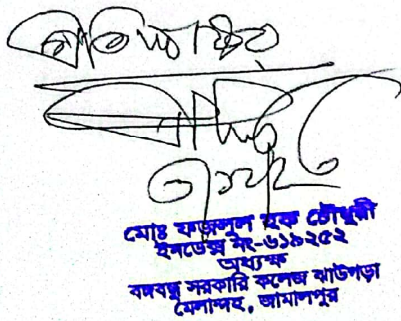 প্রতিস্বাক্ষর
মোঃ ফজলুল হক চৌধুরী
ইনডেক্স নং-৬১৯২৫২
অধ্যক্ষ
বঙ্গবন্ধু সরকারি কলেজ ঝাউগড়া
মেলান্দহ, জামালপুর